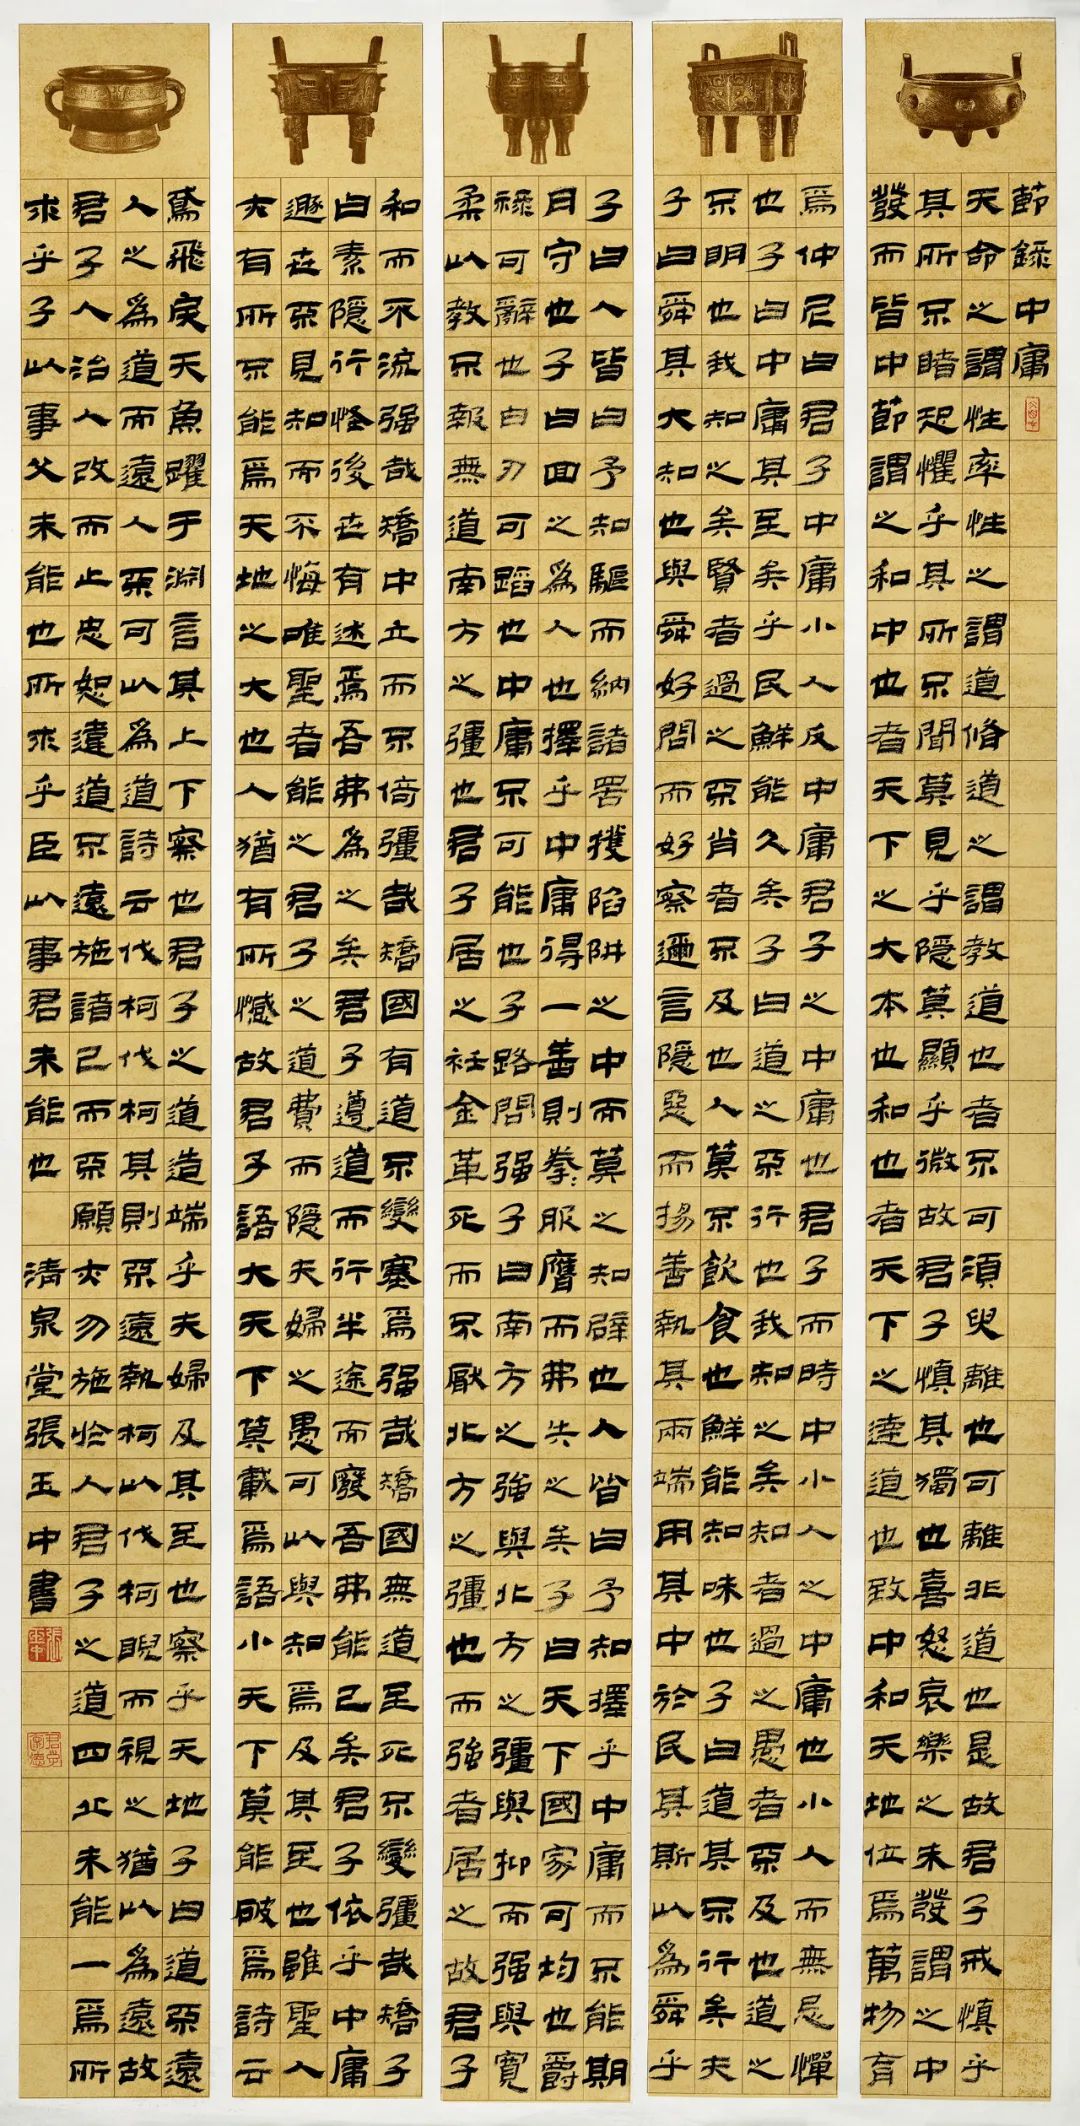 節錄中庸
天命之謂性率性之謂道脩道之謂教道也者不可須臾離也可離非道也是故君子戒慎乎
其所不睹恐懼乎其所不聞莫見乎隱莫顯乎微故君子慎其獨也喜怒哀樂之未發謂之中
發而皆中節謂之和中也者天下之大本也和也者天下之達道也致中和天地位焉萬物育
焉仲尼曰君子中庸小人反中庸君子之中庸也君子而時中小人之中庸也小人而無忌憚
也子曰中庸其至矣乎民鮮能久矣子曰道之不行也我知之矣知者過之愚者不及也道之
不明也我知之矣賢者過之不肖者不及也人莫不飲食也鮮能知味也子曰道其不行矣夫
子曰舜其大知也與舜好問而好察邇言隱惡而揚善執其兩端用其中於民其斯以為舜乎
子曰人皆曰予知驅而納諸罟擭陷阱之中而莫之知辟也人皆曰予知擇乎中庸而不能期
月守也子曰回之為人也擇乎中庸得一善則拳〻服膺而弗失之矣子曰天下國家可均也爵
祿可辭也白刃可蹈也中庸不可能也子路問强子曰南方之强與北方之彊與抑而强與寬
柔以教不報無道南方之彊也君子居之衽金革死而不厭北方之彊也而強者居之故君子
和而不流强哉矯中立而不倚彊哉矯國有道不變塞焉强哉矯國無道至死不變彊哉矯子
曰素隱行怪後世有述焉吾弗為之矣君子遵道而行半途而廢吾弗能已矣君子依乎中庸
遯世不見知而不悔唯聖者能之君子之道費而隱夫婦之愚可以與知焉及其至也雖聖人
亦有所不能焉天地之大也人猶有所憾故君子語大天下莫載焉語小天下莫能破焉詩云
鳶飛戾天魚躍于淵言其上下察也君子之道造端乎夫婦及其至也察乎天地子曰道不遠
人之為道而遠人不可以為道詩云伐柯伐柯其則不遠執柯以伐柯睨而視之猶以為遠故
君子人治人改而止忠恕違道不遠施諸己而不願亦勿施於人君子之道四丘未能一焉所
求乎子以事父未能也所求乎臣以事君未能也 清泉堂張玉中書